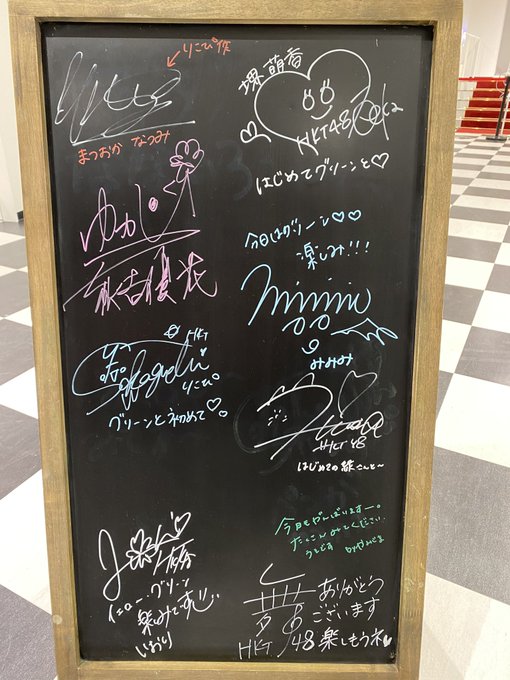 りこぴ作
まつおか なつみ
ゆうし
秋吉優花
HKT
Sakaguchi
りこぴ
グリーンと初めて♡。
イエロー、グリーン
楽しみです!!
いおり
堺萌香
HKT48
はじめてグリーンと♡
今日はグリーン♡♡
楽しみ!!!
minimi
みみみ
HKT48
はじめての緑さんと〜
今日もがんばいますー。
たっくさんみてください
うとです
ありがとう
ございます
HKT48 楽しもうネ